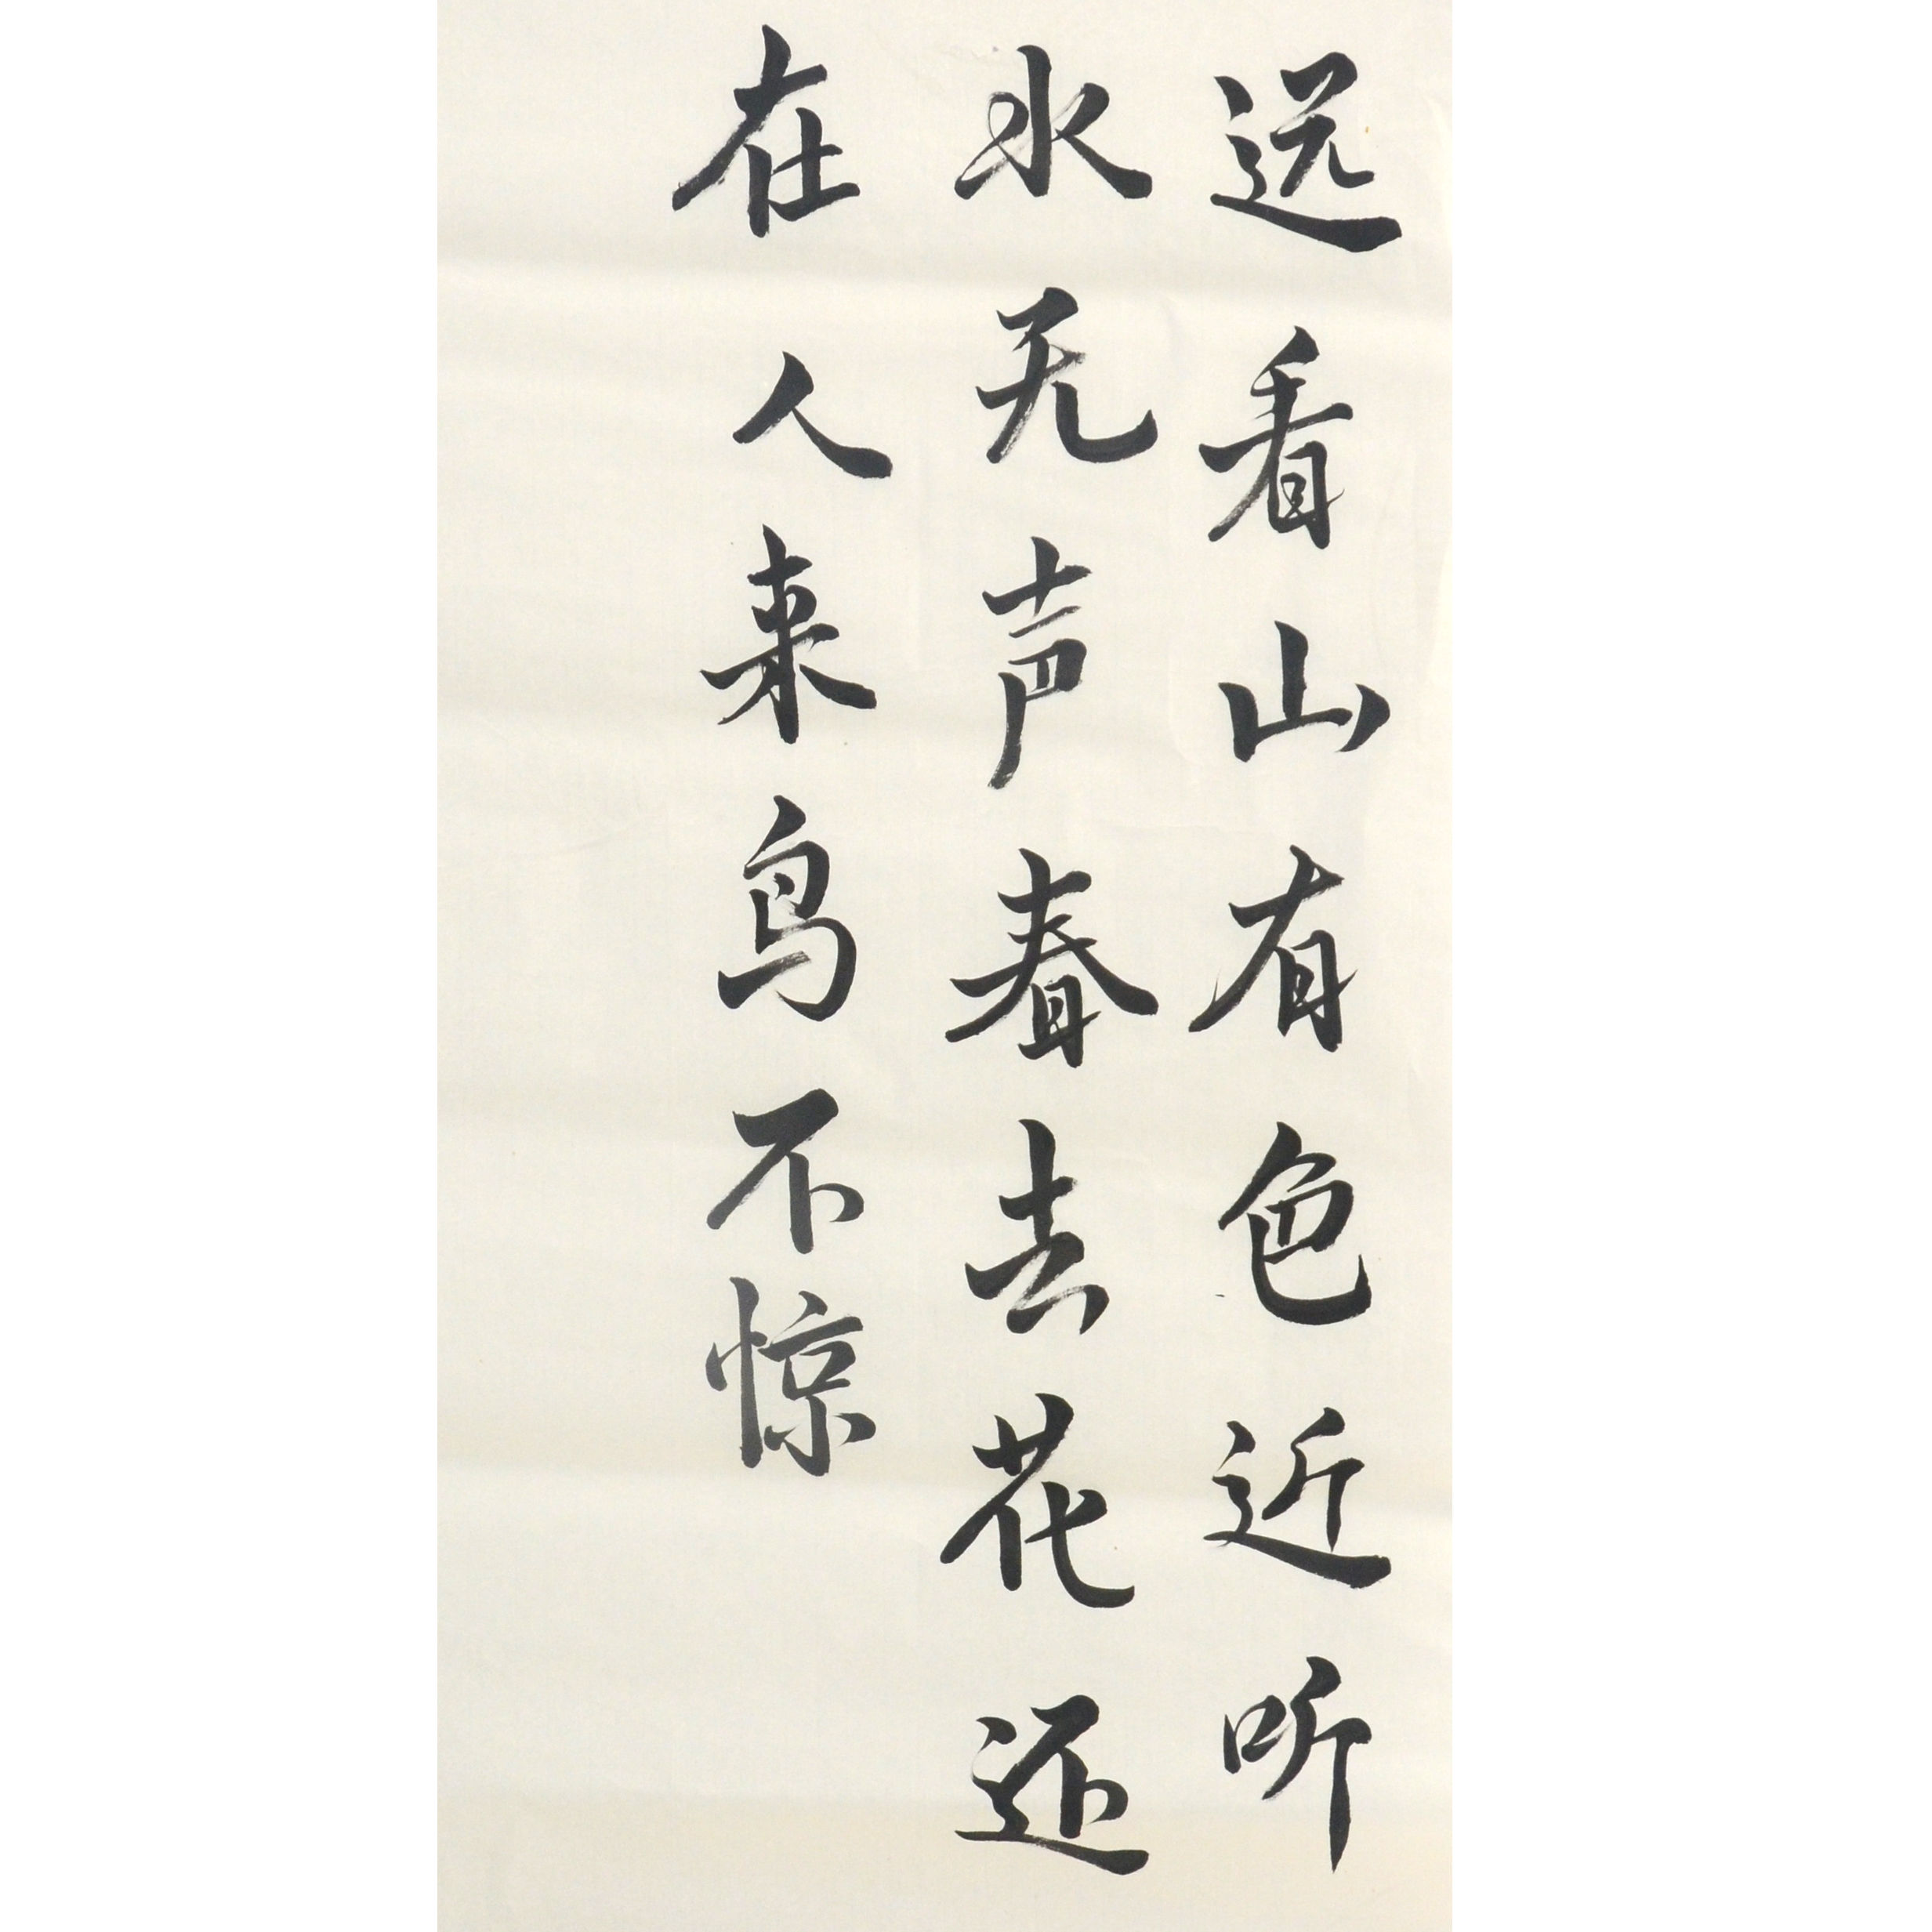 远看山有色近听
水无声春去花还
在人来鸟不惊